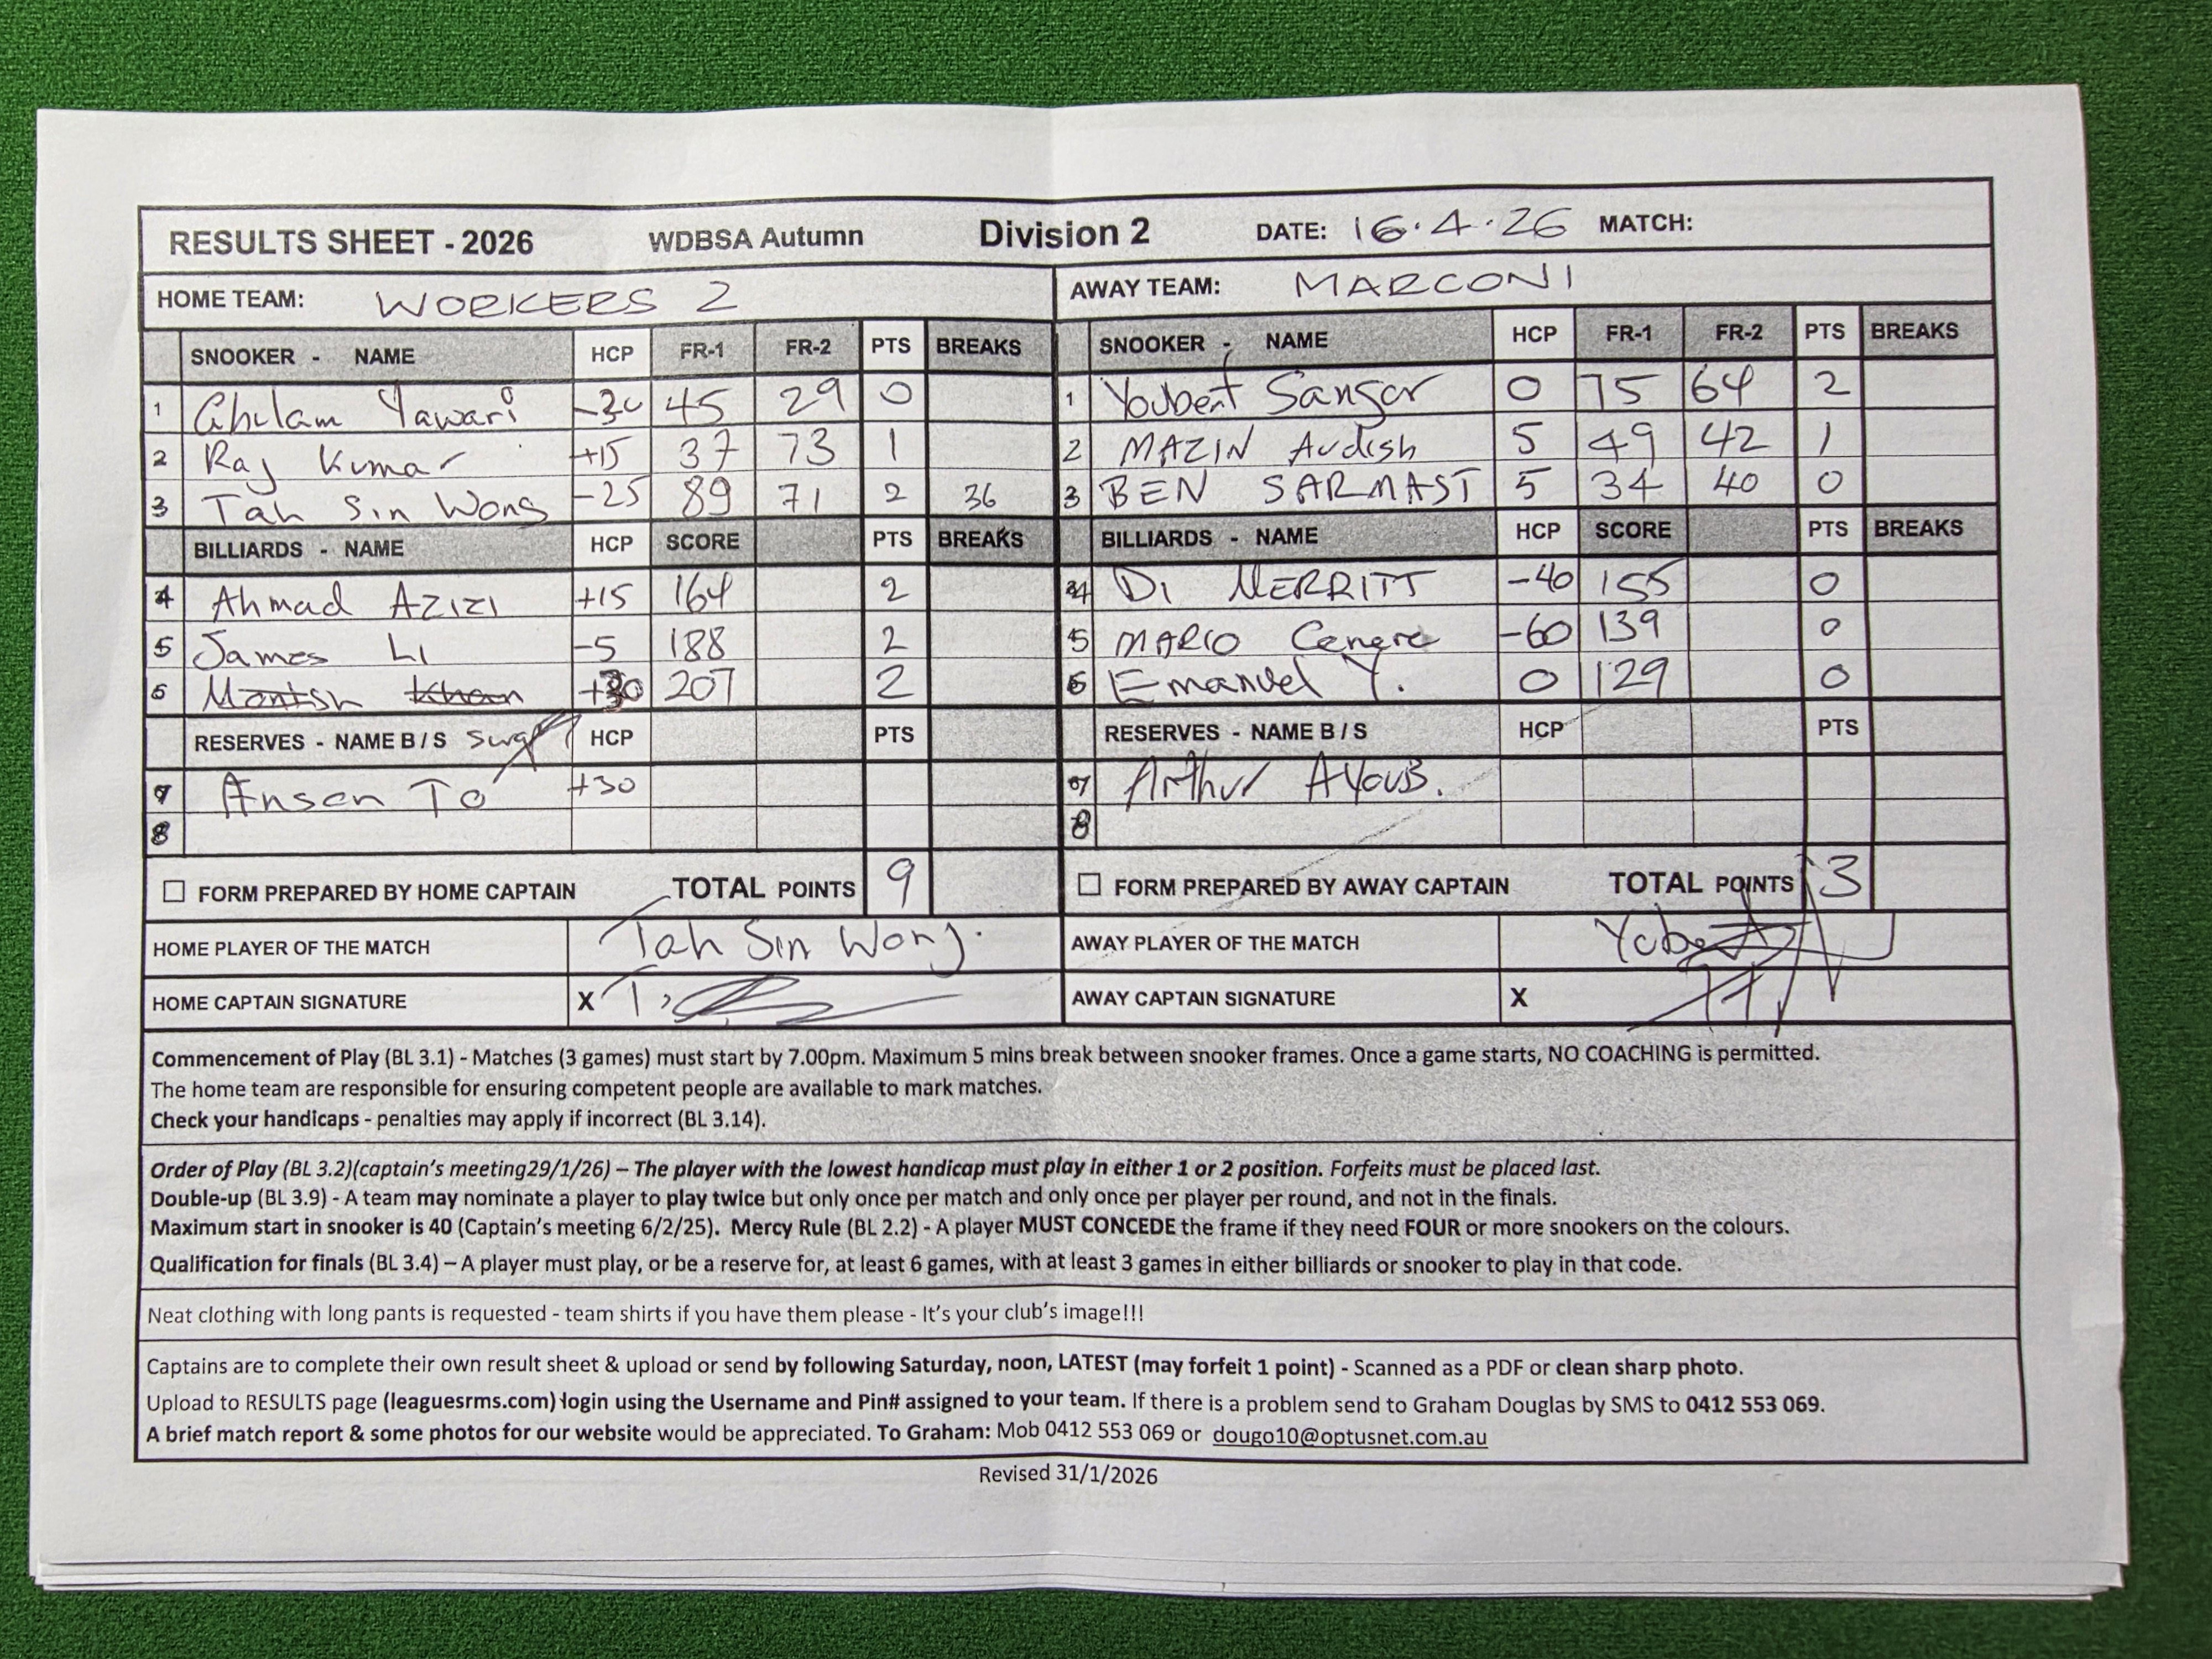 RESULTS SHEET - 2026 WDBSA Autumn Division 2 DATE: 16.4.26 MATCH:
HOME TEAM: WORKERS 2 AWAY TEAM: MARCONI
SNOOKER - NAME HCP FR-1 FR-2 PTS BREAKS SNOOKER - NAME HCP FR-1 FR-2 PTS BREAKS
1 Ghulam Yawari -30 45 29 0 1 Youbert Sangar 0 75 64 2
2 Raj Kumar +15 37 73 1 2 MAZIN Audish 5 49 42 1
3 Tah Sin Wong -25 89 71 2 36 3 BEN SARMAST 5 34 40 0
BILLIARDS - NAME HCP SCORE PTS BREAKS BILLIARDS - NAME HCP SCORE PTS BREAKS
4 Ahmad AZIZI +15 164 2 4 Di MERRITT -40 155 0
5 James LI -5 188 2 5 MARIO -60 139 0
6 Khan +30 207 2 6 Emanuel Y. 0 129 0
RESERVES - NAME B / S swap HCP PTS RESERVES - NAME B / S HCP PTS
7 Anson To +30 7 Arthur AYOUB.
8 8
FORM PREPARED BY HOME CAPTAIN TOTAL POINTS 9 FORM PREPARED BY AWAY CAPTAIN TOTAL POINTS 3
HOME PLAYER OF THE MATCH Tah Sin Wong. AWAY PLAYER OF THE MATCH
HOME CAPTAIN SIGNATURE X AWAY CAPTAIN SIGNATURE X
Commencement of Play (BL 3.1) - Matches (3 games) must start by 7.00pm. Maximum 5 mins break between snooker frames. Once a game starts, NO COACHING is permitted.
The home team are responsible for ensuring competent people are available to mark matches.
Check your handicaps - penalties may apply if incorrect (BL 3.14).
Order of Play (BL 3.2)(captain's meeting29/1/26) – The player with the lowest handicap must play in either 1 or 2 position. Forfeits must be placed last.
Double-up (BL 3.9) - A team may nominate a player to play twice but only once per match and only once per player per round, and not in the finals.
Maximum start in snooker is 40 (Captain's meeting 6/2/25). Mercy Rule (BL 2.2) - A player MUST CONCEDE the frame if they need FOUR or more snookers on the colours.
Qualification for finals (BL 3.4) – A player must play, or be a reserve for, at least 6 games, with at least 3 games in either billiards or snooker to play in that code.
Neat clothing with long pants is requested - team shirts if you have them please - It's your club's image!!!
Captains are to complete their own result sheet & upload or send by following Saturday, noon, LATEST (may forfeit 1 point) - Scanned as a PDF or clean sharp photo.
Upload to RESULTS page (leaguesrms.com) login using the Username and Pin# assigned to your team. If there is a problem send to Graham Douglas by SMS to 0412 553 069.
A brief match report & some photos for our website would be appreciated. To Graham: Mob 0412 553 069 or dougo10@optusnet.com.au
Revised 31/1/2026